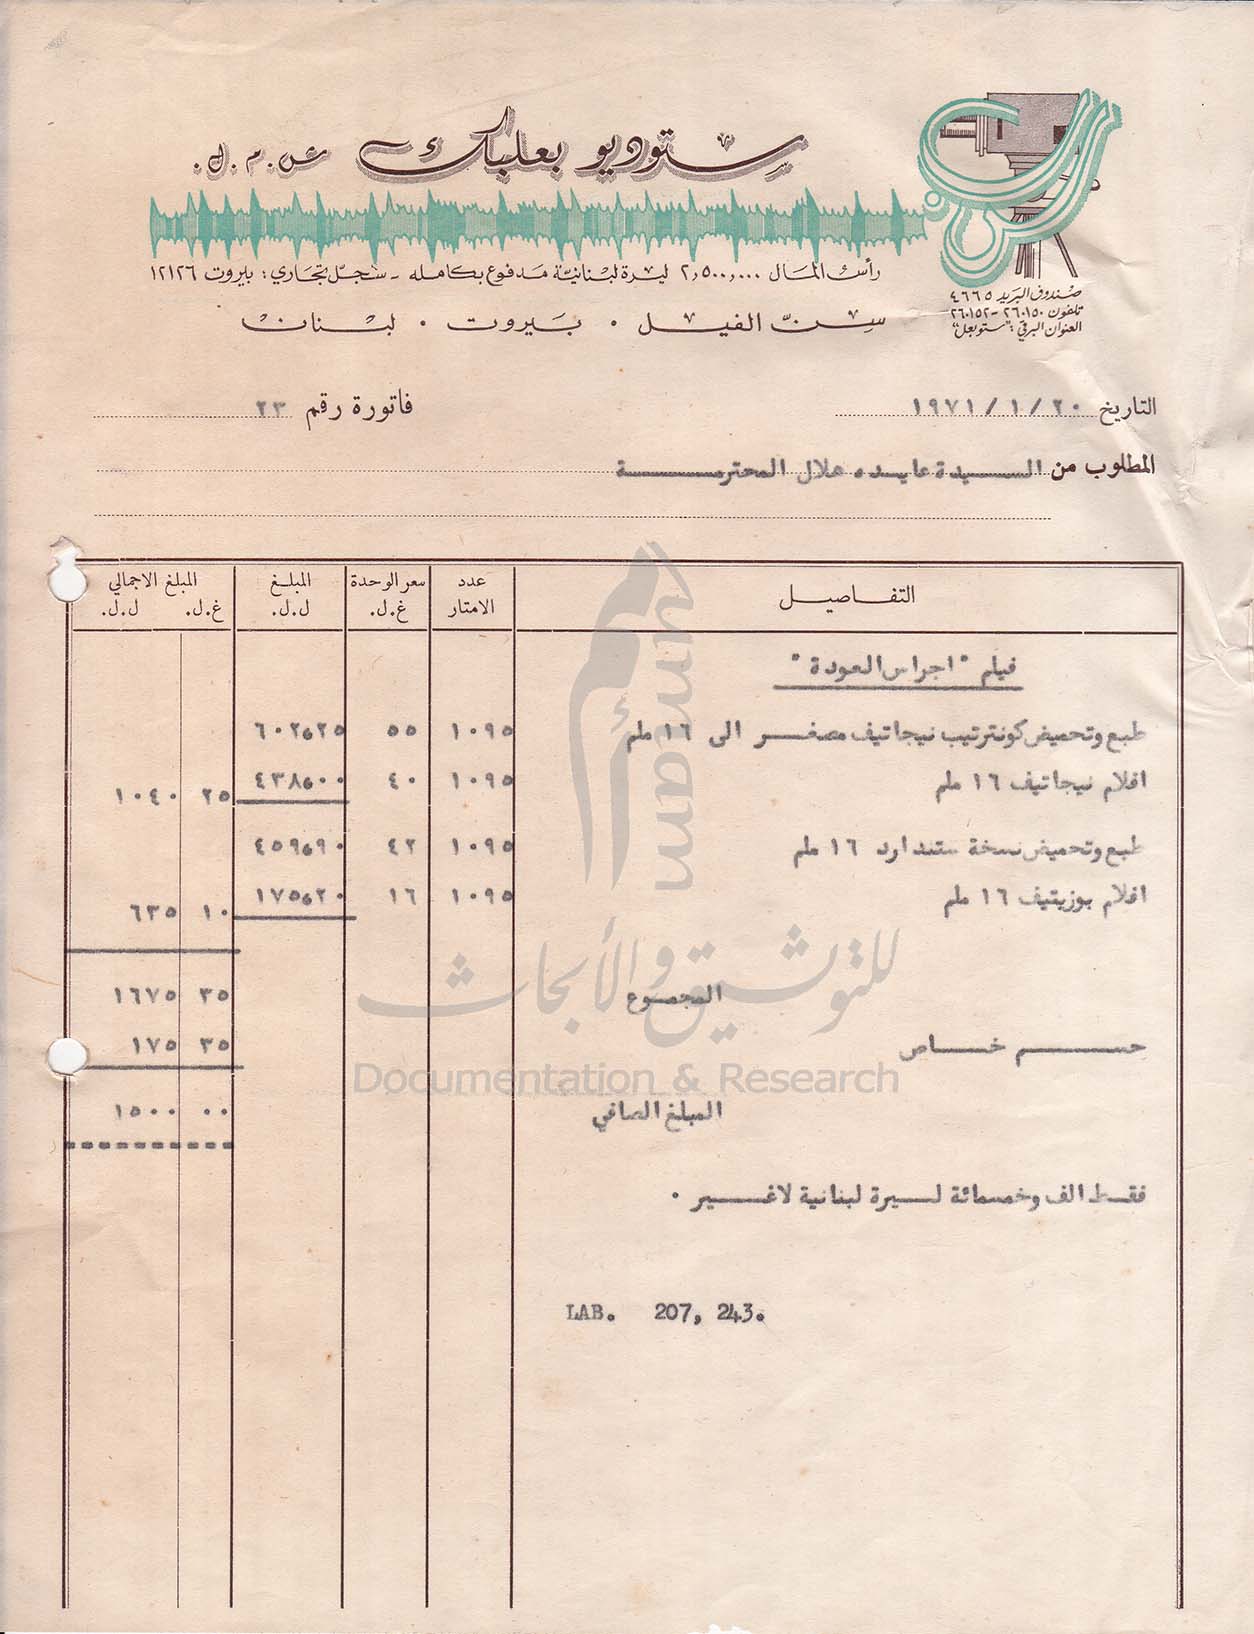 ستوديو بعلبك ش.م.ل.
رأس المال ٢,٥٠٠,٠٠٠ ليرة لبنانية مدفوع بكامله - سجل تجاري: بيروت ١٢١٢٦
سن الفيل • بيروت • لبنان
صندوق البريد ٤٦٦٥
تلفون ٢٦٠١٥٠ - ٢٦٠١٥٢
العنوان البرقي: "ستوبعل"
التاريخ ٢٠ / ١ / ١٩٧١
فاتورة رقم ٢٣
المطلوب من السيدة عايده هلال المحترمة
التفاصيل عدد الامتار سعر الوحدة غ.ل. المبلغ ل.ل. المبلغ الاجمالي غ.ل. ل.ل.
فيلم "اجراس العودة"
طبع وتحميض كونترتيب نيجاتيف مصغر الى ١٦ ملم ١٠٩٥ ٥٥ ٦٠٢،٢٥
افلام نيجاتيف ١٦ ملم ١٠٩٥ ٤٠ ٤٣٨،٠٠ ٢٥ ١٠٤٠
طبع وتحميض نسخة ستندارد ١٦ ملم ١٠٩٥ ٤٢ ٤٥٩،٩٠
افلام بوزيتيف ١٦ ملم ١٠٩٥ ١٦ ١٧٥،٢٠ ١٠ ٦٣٥
المجموع ٣٥ ١٦٧٥
حسم خاص ٣٥ ١٧٥
المبلغ الصافي ٠٠ ١٥٠٠
فقط الف وخمسمائة ليرة لبنانية لاغير .
LAB. 207, 243.
أمم
umam
للتوثيق والأبحاث
Documentation & Research